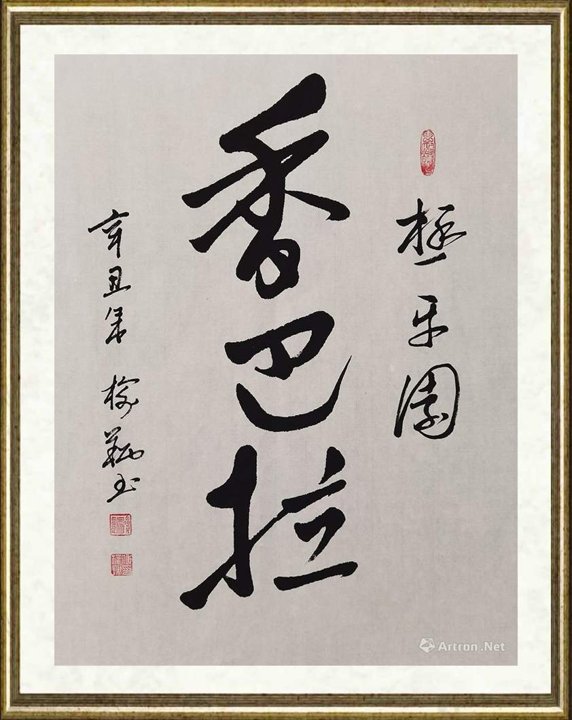 極乐園
香巴拉
辛丑年
Artron.Net